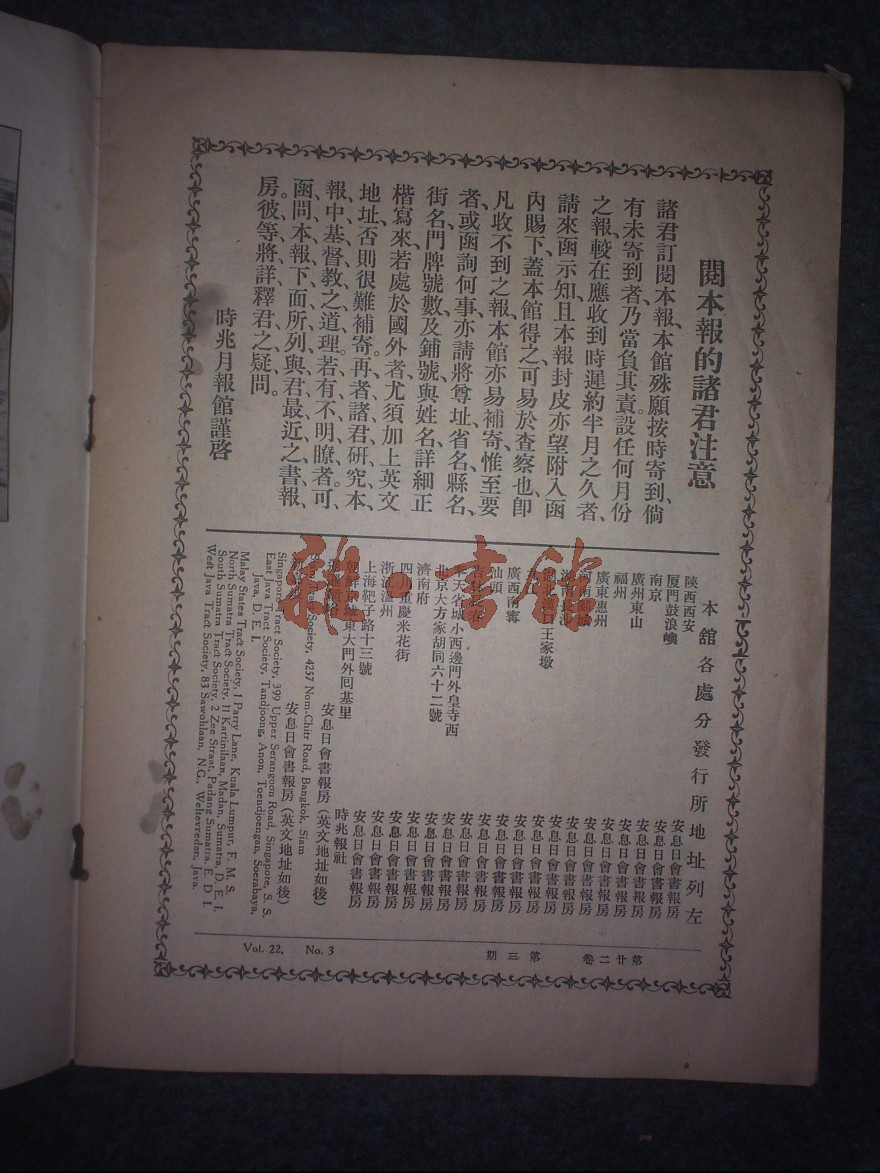 閱本報的諸君注意
諸君訂閱本報、本館殊願按時寄到、倘
有未寄到者、乃當負其責。設任何月份
之報、較在應收到時遲約半月之久者、
請來函示知、且本報封皮、亦望附入函
內賜下、蓋本館得之、可易於查察也、卽
凡收不到之報、本館亦易補寄。惟至要
者、或函詢何事、亦請將尊址省名、縣名、
街名、門牌號數、及鋪號與姓名、詳細正
楷寫來、若處於國外者、尤須加上英文
地址、否則很難補寄。再者、諸君研究本
報中基督教之道理、若有不明瞭者、可
函問本報下面所列、與君最近之書報
房。彼等將詳釋君之疑問。
時兆月報館謹啓
本館各處分發行所地址列左
陝西西安 安息日會書報房
厦門鼓浪嶼 安息日會書報房
南京 安息日會書報房
廣州東山 安息日會書報房
福州 安息日會書報房
廣東惠州 安息日會書報房
安息日會書報房
湖南長沙 安息日會書報房
王家墩 安息日會書報房
安息日會書報房
廣西南寗 安息日會書報房
汕頭 安息日會書報房
安息日會書報房
奉天省城小西邊門外皇寺西 安息日會書報房
北京大方家胡同六十二號 安息日會書報房
濟南府 安息日會書報房
四川重慶米花街 安息日會書報房
浙江溫州 安息日會書報房
上海靶子路十三號 安息日會書報房
朝鮮京城東大門外囘基里 時兆報社
安息日會書報房(英文地址如後)
Tract Society, 4257 Nom-Chitr Road, Bangkok, Siam
安息日會書報房(英文地址如後)
Singapore Tract Society, 399 Upper Serangoon Road, Singapore, S. S.
East Java Tract Society, Tandjoong, Anon, Toendjoengan, Soerabaya,
Java, D. E. I.
Malay States Tract Society, 1 Parry Lane, Kuala Lumpur, F. M. S.
North Sumatra Tract Society, 11 Kartinilaan, Madan, Sumatra, D. E. I.
South Sumatra Tract Society, 2 Zee Straat, Padang Sumatra. E. D. I.
West Java Tract Society, 83 Sawohlaan, N.G., Weltevreden, Java.
第廿二卷 第三期
Vol. 22, No. 3
雜·書館